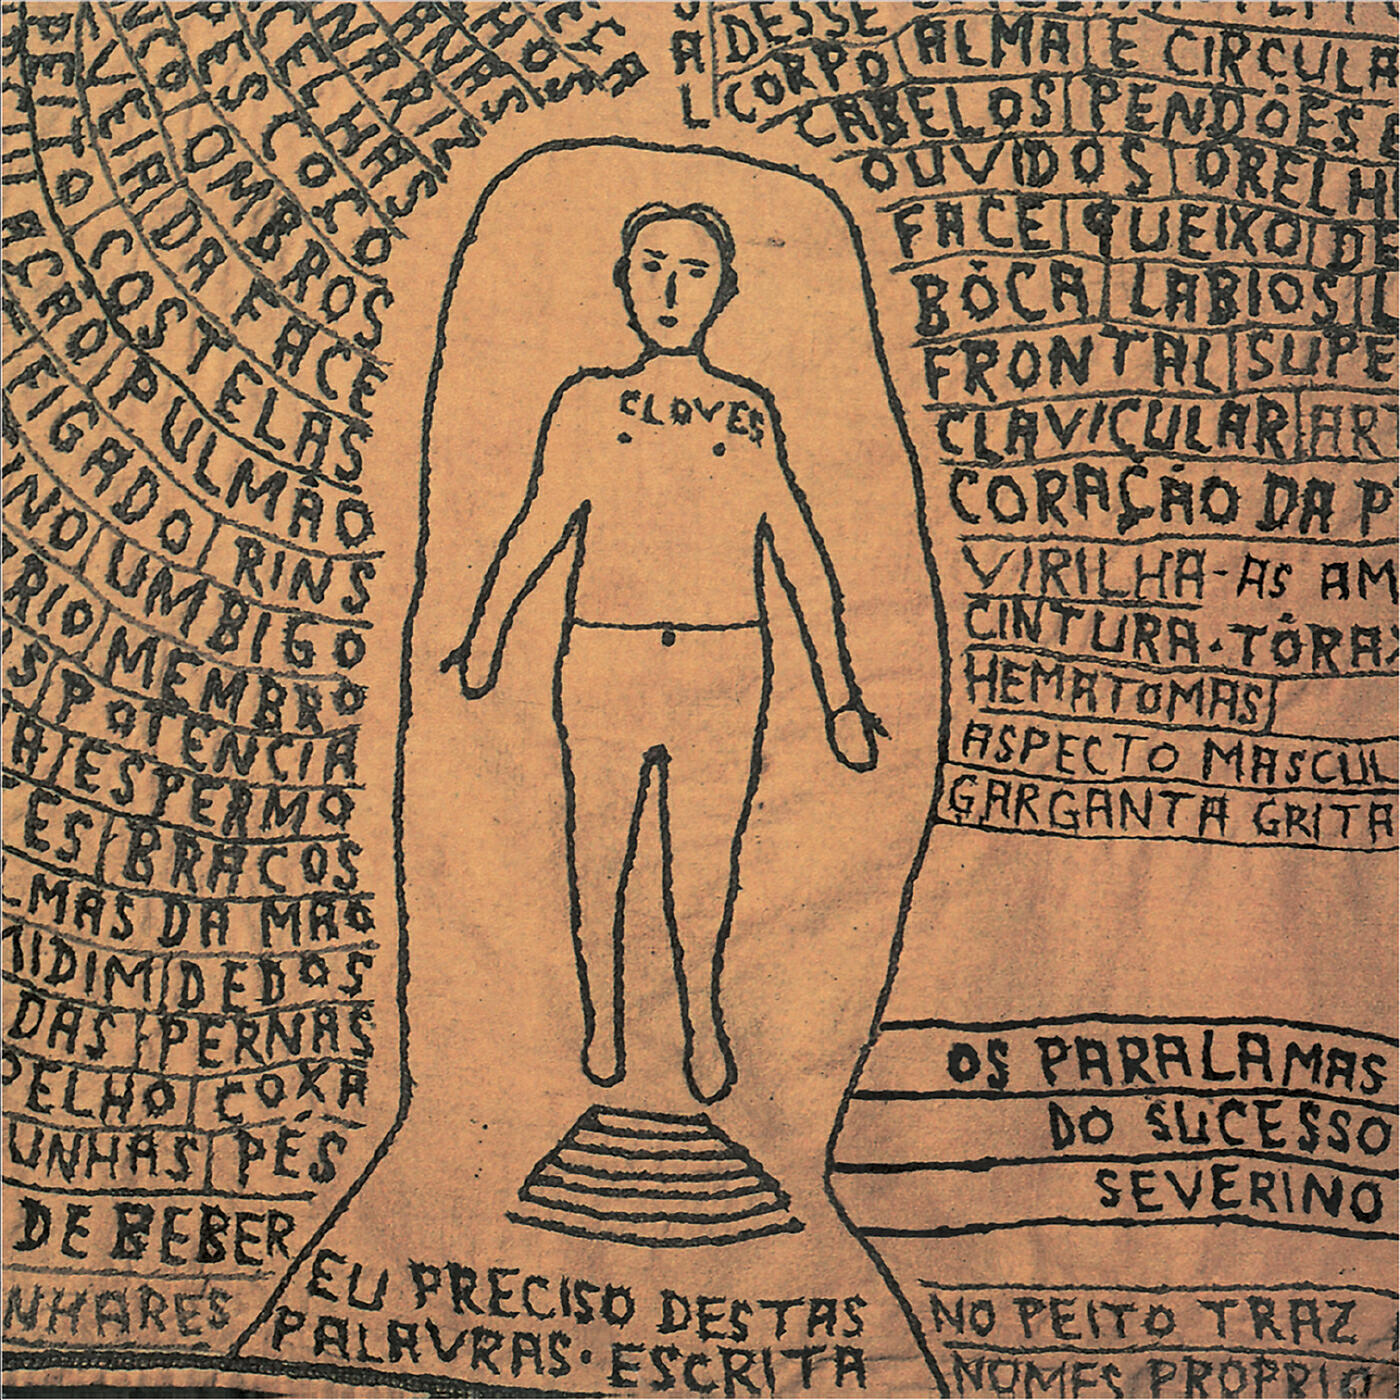 DESSE
CORPO
ALMA E CIRCULA
CABELOS PENDÕES
OUVIDOS ORELH
FACE QUEIXO DE
BÔCA LABIOS L
FRONTAL SUPE
CLAVICULAR AR
CORAÇÃO DA P
VIRILHA-AS AM
CINTURA.TÓRA
HEMATOMAS
ASPECTO MASCUL
GARGANTA GRITA
CELHAS
COCO
OMBROS
VEIRA DA FACE
PEITO COSTELAS
PULMÃO
FIGADO RINS
INO UMBIGO
RIO MEMBRO
S POTENCIA
A ESPERMO
ES BRACOS
LMAS DA MÃO
MIDIM DEDOS
DAS PERNAS
OELHO COXA
UNHAS PÉS
DE BEBER
NHARES
CLOVES
OS PARALAMAS
DO SUCESSO
SEVERINO
EU PRECISO DESTAS
PALAVRAS. ESCRITA
NO PEITO TRAZ
NOMES PROPRIO